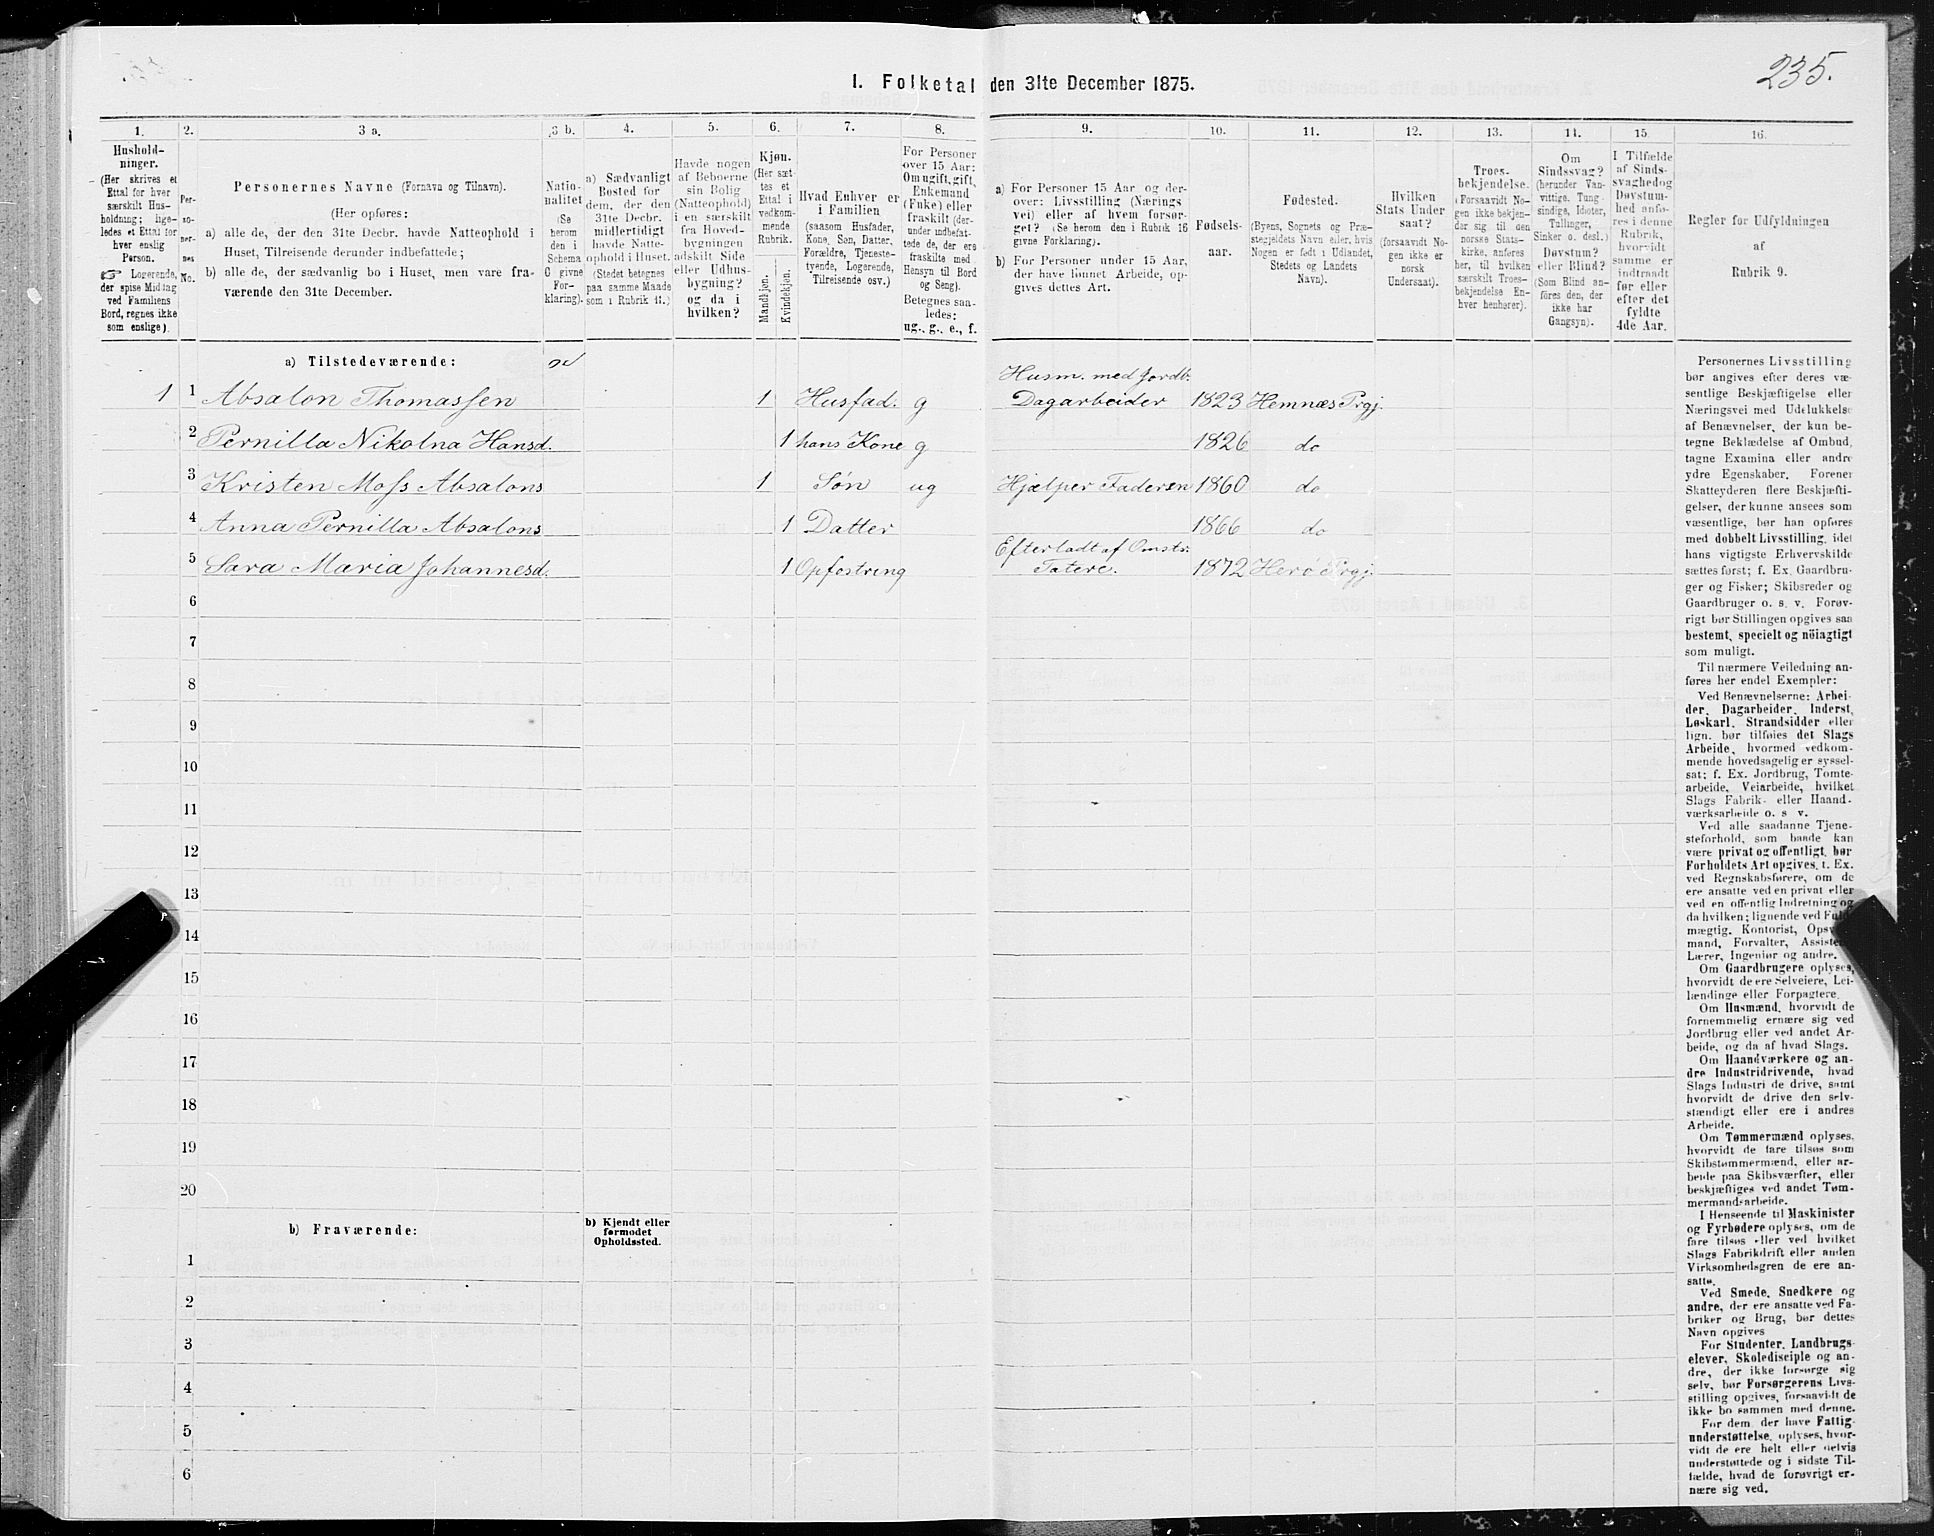 235.
I. Folketal den 31te December 1875.
1.
2.
3 a.
3 b.
4.
5.
6.
7.
8.
9.
10.
11.
12.
13.
14.
15.
16.
Hushold-
ninger.
(Her skrives et
Ettal for hver
særskilt Hus-
holdning; lige-
ledes et Ettal for
hver enslig
Person.
☞ Logerende,
der spise Middag
ved Familiens
Bord, regnes ikke
som enslige).
Per-
so-
ner-
nes
No.
Personernes Navne (Fornavn og Tilnavn).
(Her opføres:
a) alle de, der den 31te Decbr. havde Natteophold i
Huset, Tilreisende derunder indbefattede;
b) alle de, der sædvanlig bo i Huset, men vare fra-
værende den 31te December.
Natio-
nalitet
(Se
herom
den i
Schema
6 givne
For-
klaring).
a) Sædvanligt
Bosted for
dem, der den
31te Decbr.
midlertidigt
havde Natte-
ophold i Huset.
(Stedet betegnes
paa samme Maade
som i Rubrik 11.)
Havde nogen
af Beboerne
sin Bolig
(Natteophold)
i en særskilt
fra Hoved-
bygningen
adskilt Side
eller Udhus-
bygning?
og da i
hvilken?
Kjøn.
(Her sæt-
tes et
Ettal i
vedkom-
mende
Rubrik.
Mandkjøn.
Kvindekjøn.
Hvad Enhver er
i Familien
(saasom Husfader,
Kone, Søn, Datter,
Forældre, Tjeneste-
tyende, Logerende,
Tilreisende osv.)
For Personer
over 15 Aar:
Om ugift, gift,
Enkemand
(Enke) eller
fraskilt (der-
under indbefat-
tede de, der ere
fraskilte med
Hensyn til Bord
og Seng).
Betegnes saa-
ledes:
ug., g., e., f.
a) For Personer 15 Aar og der-
over: Livsstilling (Nærings
vei) eller af hvem forsør-
get? (Se herom den i Rubrik 16
givne Forklaring).
b) For Personer under 15 Aar,
der have lønnet Arbeide, op-
gives dettes Art.
Fødsels-
aar.
Fødested.
(Byens, Sognets og Præ-
stegjeldets Navn eller, hvis
Nogen er født i Udlandet,
Stedets og Landets
Navn).
Hvilken
Stats Under
saat?
(forsaavidt No-
gen ikke er
norsk
Undersaat).
Troes-
bekjendelse.
(Forsaavidt No-
gen ikke bekjen-
der sig til den
norske Stats-
kirke, anføres
her, til hvilken
særskilt Troes-
bekjendelse En-
hver henhører).
Om
Sindssvag?
(herunder Van-
vittige, Tung-
sindige, Idioter,
Tullinger,
Sinker o. desl.)
Døvstum?
eller Blind?
(Som Blind an-
føres den, der
ikke har
Gangsyn).
I Tilfælde
af Sinds-
svaghed og
Døvstum-
hed anfø-
res i denne
Rubrik,
hvorvidt
samme er
indtraadt
før eller
efter det
fyldte
4de Aar.
Regler for Udfyldningen
af
Rubrik 9.
a) Tilstedeværende:
1 1 Absalon Thomassen 1 Husfad. g Husm. med Jordb.
Dagarbeider 1823 Hemnæs Prgj.
2 Pernilla Nikolna Hansd. 1 hans Kone g 1826 do
3 Kristen Moss Absalons 1 Søn ug Hjælper Faderen 1860 do
4 Anna Pernilla Absalons 1 Datter 1866 do
5 Sara Maria Johannesd. 1 Opfostring Efterladt af Omstr.
Tatere. 1872 Herø Prgj.
6
7
8
9
10
11
12
13
14
15
16
17
18
19
20
b) Fraværende:
b) Kjendt eller
formodet
Opholdssted.
1
2
3
4
5
6
Personernes Livsstilling
bør angives efter deres væ-
sentlige Beskjæftigelse eller
Næringsvei med Udelukkelse
af Benævnelser, der kun be-
tegne Beklædelse af Ombud,
tagne Examina eller andre
ydre Egenskaber. Forener
Skatteyderen flere Beskjæfti-
gelser, der kunne ansees som
væsentlige, bør han opføres
med dobbelt Livsstilling, idet
hans vigtigste Erhvervskilde
sættes først; f. Ex. Gaardbru-
ger og Fisker; Skibsreder og
Gaardbruger o. s. v. Forøv-
rigt bør Stillingen opgives saa
bestemt, specielt og nöiagtigt
som muligt.
Til nærmere Veiledning an-
føres her endel Exempler:
Ved Benævnelserne: Arbei-
der, Dagarbeider, Inderst,
Løskarl, Strandsidder eller
lign. bør tilføies det Slags
Arbeide, hvormed vedkom-
mende hovedsagelig er syssel-
sat; f. Ex. Jordbrug, Tomte-
arbeide, Veiarbeide, hvilket
Slags Fabrik- eller Haand-
værksarbeide o. s v.
Ved alle saadanne Tjene-
steforhold, som baade kan
være privat og offentligt, bør
Forholdets Art opgives, t. Ex.
ved Regnskabsførere, om de
ere ansatte ved en privat eller
ved en offentlig Indretning og
da hvilken; lignende ved Fuld-
mægtig, Kontorist, Opsyns-
mand, Forvalter, Assistent,
Lærer, Ingeniør og andre.
Om Gaardbrugere oplyses,
hvorvidt de ere Selveiere, Lei-
lændinge eller Forpagtere.
Om Husmænd, hvorvidt de
fornemmelig ernære sig ved
Jordbrug eller ved andet Ar-
beide, og da af hvad Slags.
Om Haandværkere og an-
dre Industridrivende, hvad
Slags Industri de drive, samt
hvorvidt de drive den selv-
stændigt eller ere i andres
Arbeide.
Om Tømmermænd oplyses,
hvorvidt de fare tilsøs som
Skibstømmermænd, eller ar-
beide paa Skibsværfter, eller
beskjæftiges ved andet Tøm-
mermandsarbeide.
I Henseende til Maskinister
og Fyrbødere oplyses, om de
fare tilsøs eller ved hvilket
Slags Fabrikdrift eller anden
Virksomhedsgren de ere an-
satte.
Ved Smede, Snedkere og
andre, der ere ansatte ved Fa-
briker og Brug, bør dettes
Navn opgives
For Studenter, Landbrugs-
elever, Skoledisciple og an-
dre, der ikke forsørge sig
selv, bør Forsørgerens Livs-
stilling opgives, forsaavidt de
ikke bo sammen med denne.
For dem, der have Fattig-
understøttelse, oplyses, hvor-
vidt de ere helt eller delvis
understøttede og i sidste Til-
fælde, hvad de forøvrigt er-
nære sig ved.